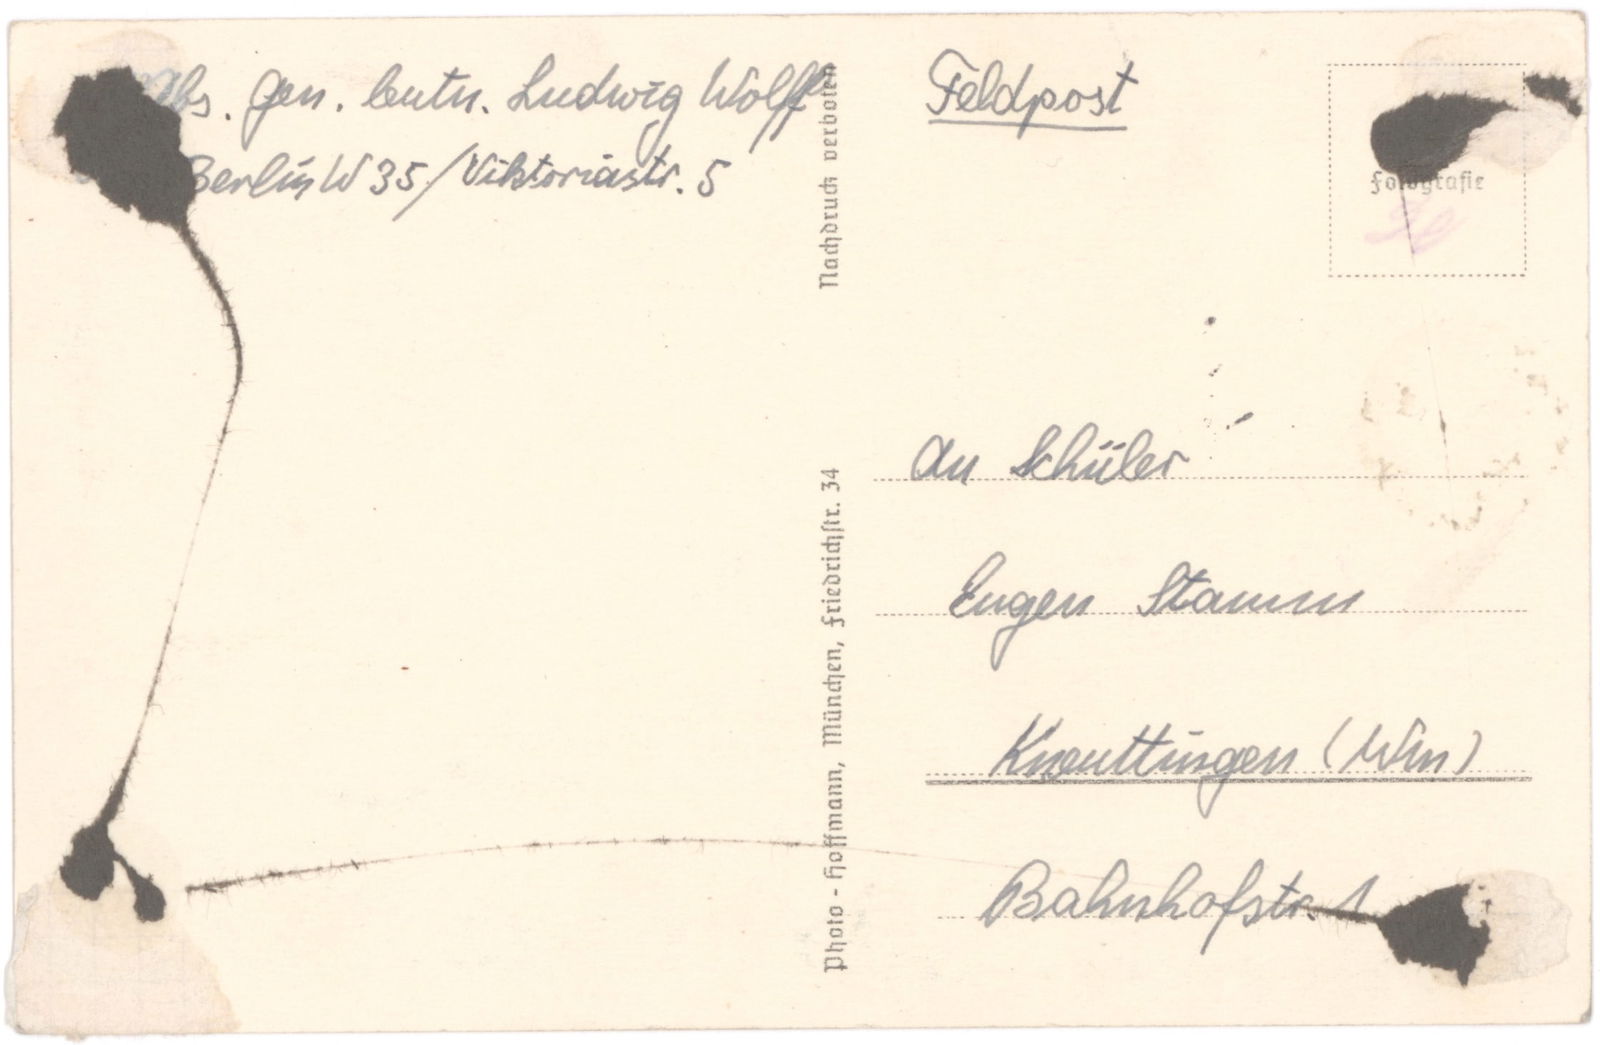 Abs. Gen. leutn. Ludwig Wolff
Berlin W 35/Viktoriastr. 5
Nachdruck verboten
Photo - Hoffmann, München, Friedrichstr. 34
Feldpost
Fotografie
An Schüler
Eugen Stamm
Knuttingen (Wm)
Bahnhofstr. 1